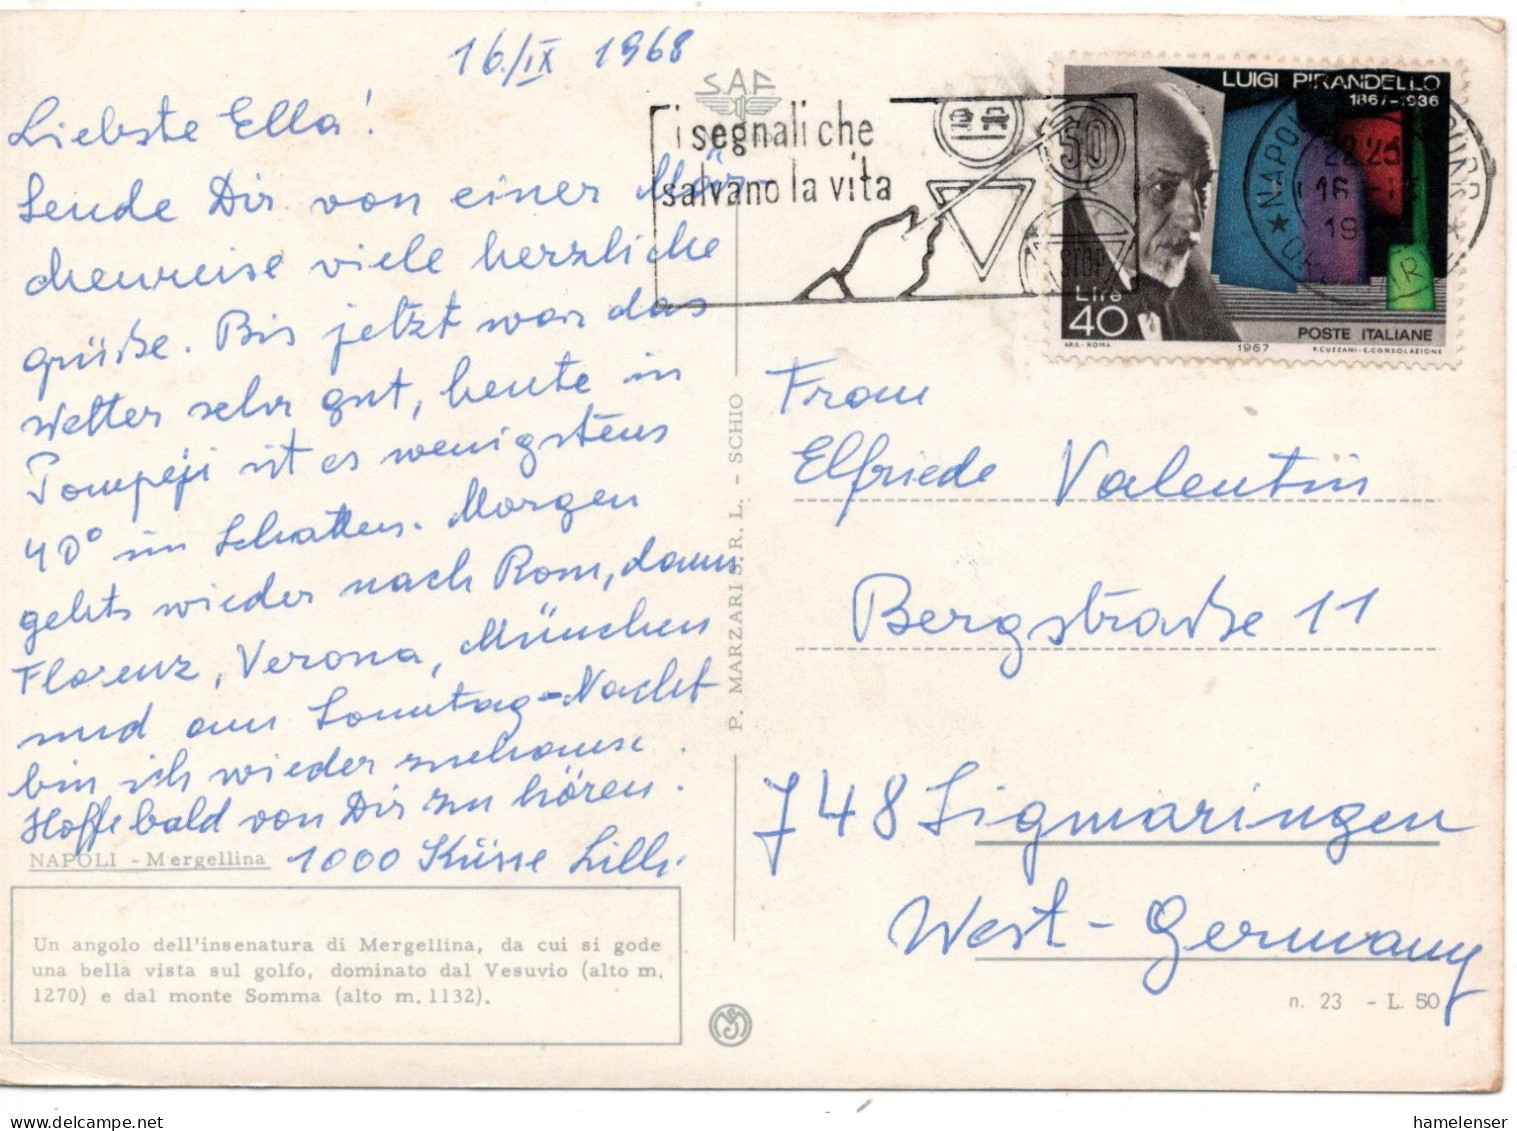 16./IX 1968
Liebste Ella!
Sende Dir von einer Mär-
chenreise viele herzliche
grüße. Bis jetzt war das
Wetter sehr gut, heute in
Pompeji ist es wenigstens
40° im Schatten. Morgen
gehts wieder nach Rom, dann
Florenz, Verona, München
und am Sonntag-Nacht
bin ich wieder zuhause.
Hoffe bald von Dir zu hören.
1000 Küsse Lilli
NAPOLI - Mergellina
Un angolo dell'insenatura di Mergellina, da cui si gode
una bella vista sul golfo, dominato dal Vesuvio (alto m.
1270) e dal monte Somma (alto m. 1132).
SAF
P. MARZARI S. R. L. - SCHIO
i segnali che
salvano la vita
50
STOP
LUIGI PIRANDELLO
1867-1936
Lire
40
POSTE ITALIANE
ARS.-ROMA
1967
F.CUZZANI-E.CONSOLAZIONE
Frau
Elfriede Valentin
Bergstraße 11
748 Sigmaringen
West-Germany
n. 23 - L. 50
hamelenser